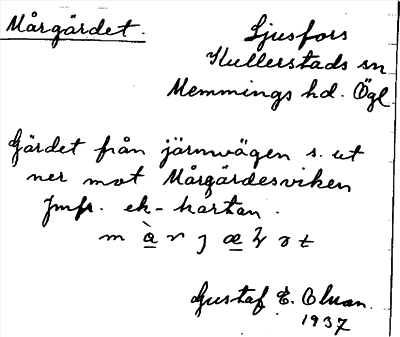 Mårgärdet.
Ljusfors
Kullerstads sn
Memmings hd. Ögl
Gärdet från järnvägen s. ut
ner mot Mårgärdesviken
Jmfr. ek-kartan.
Gustaf E.
1937